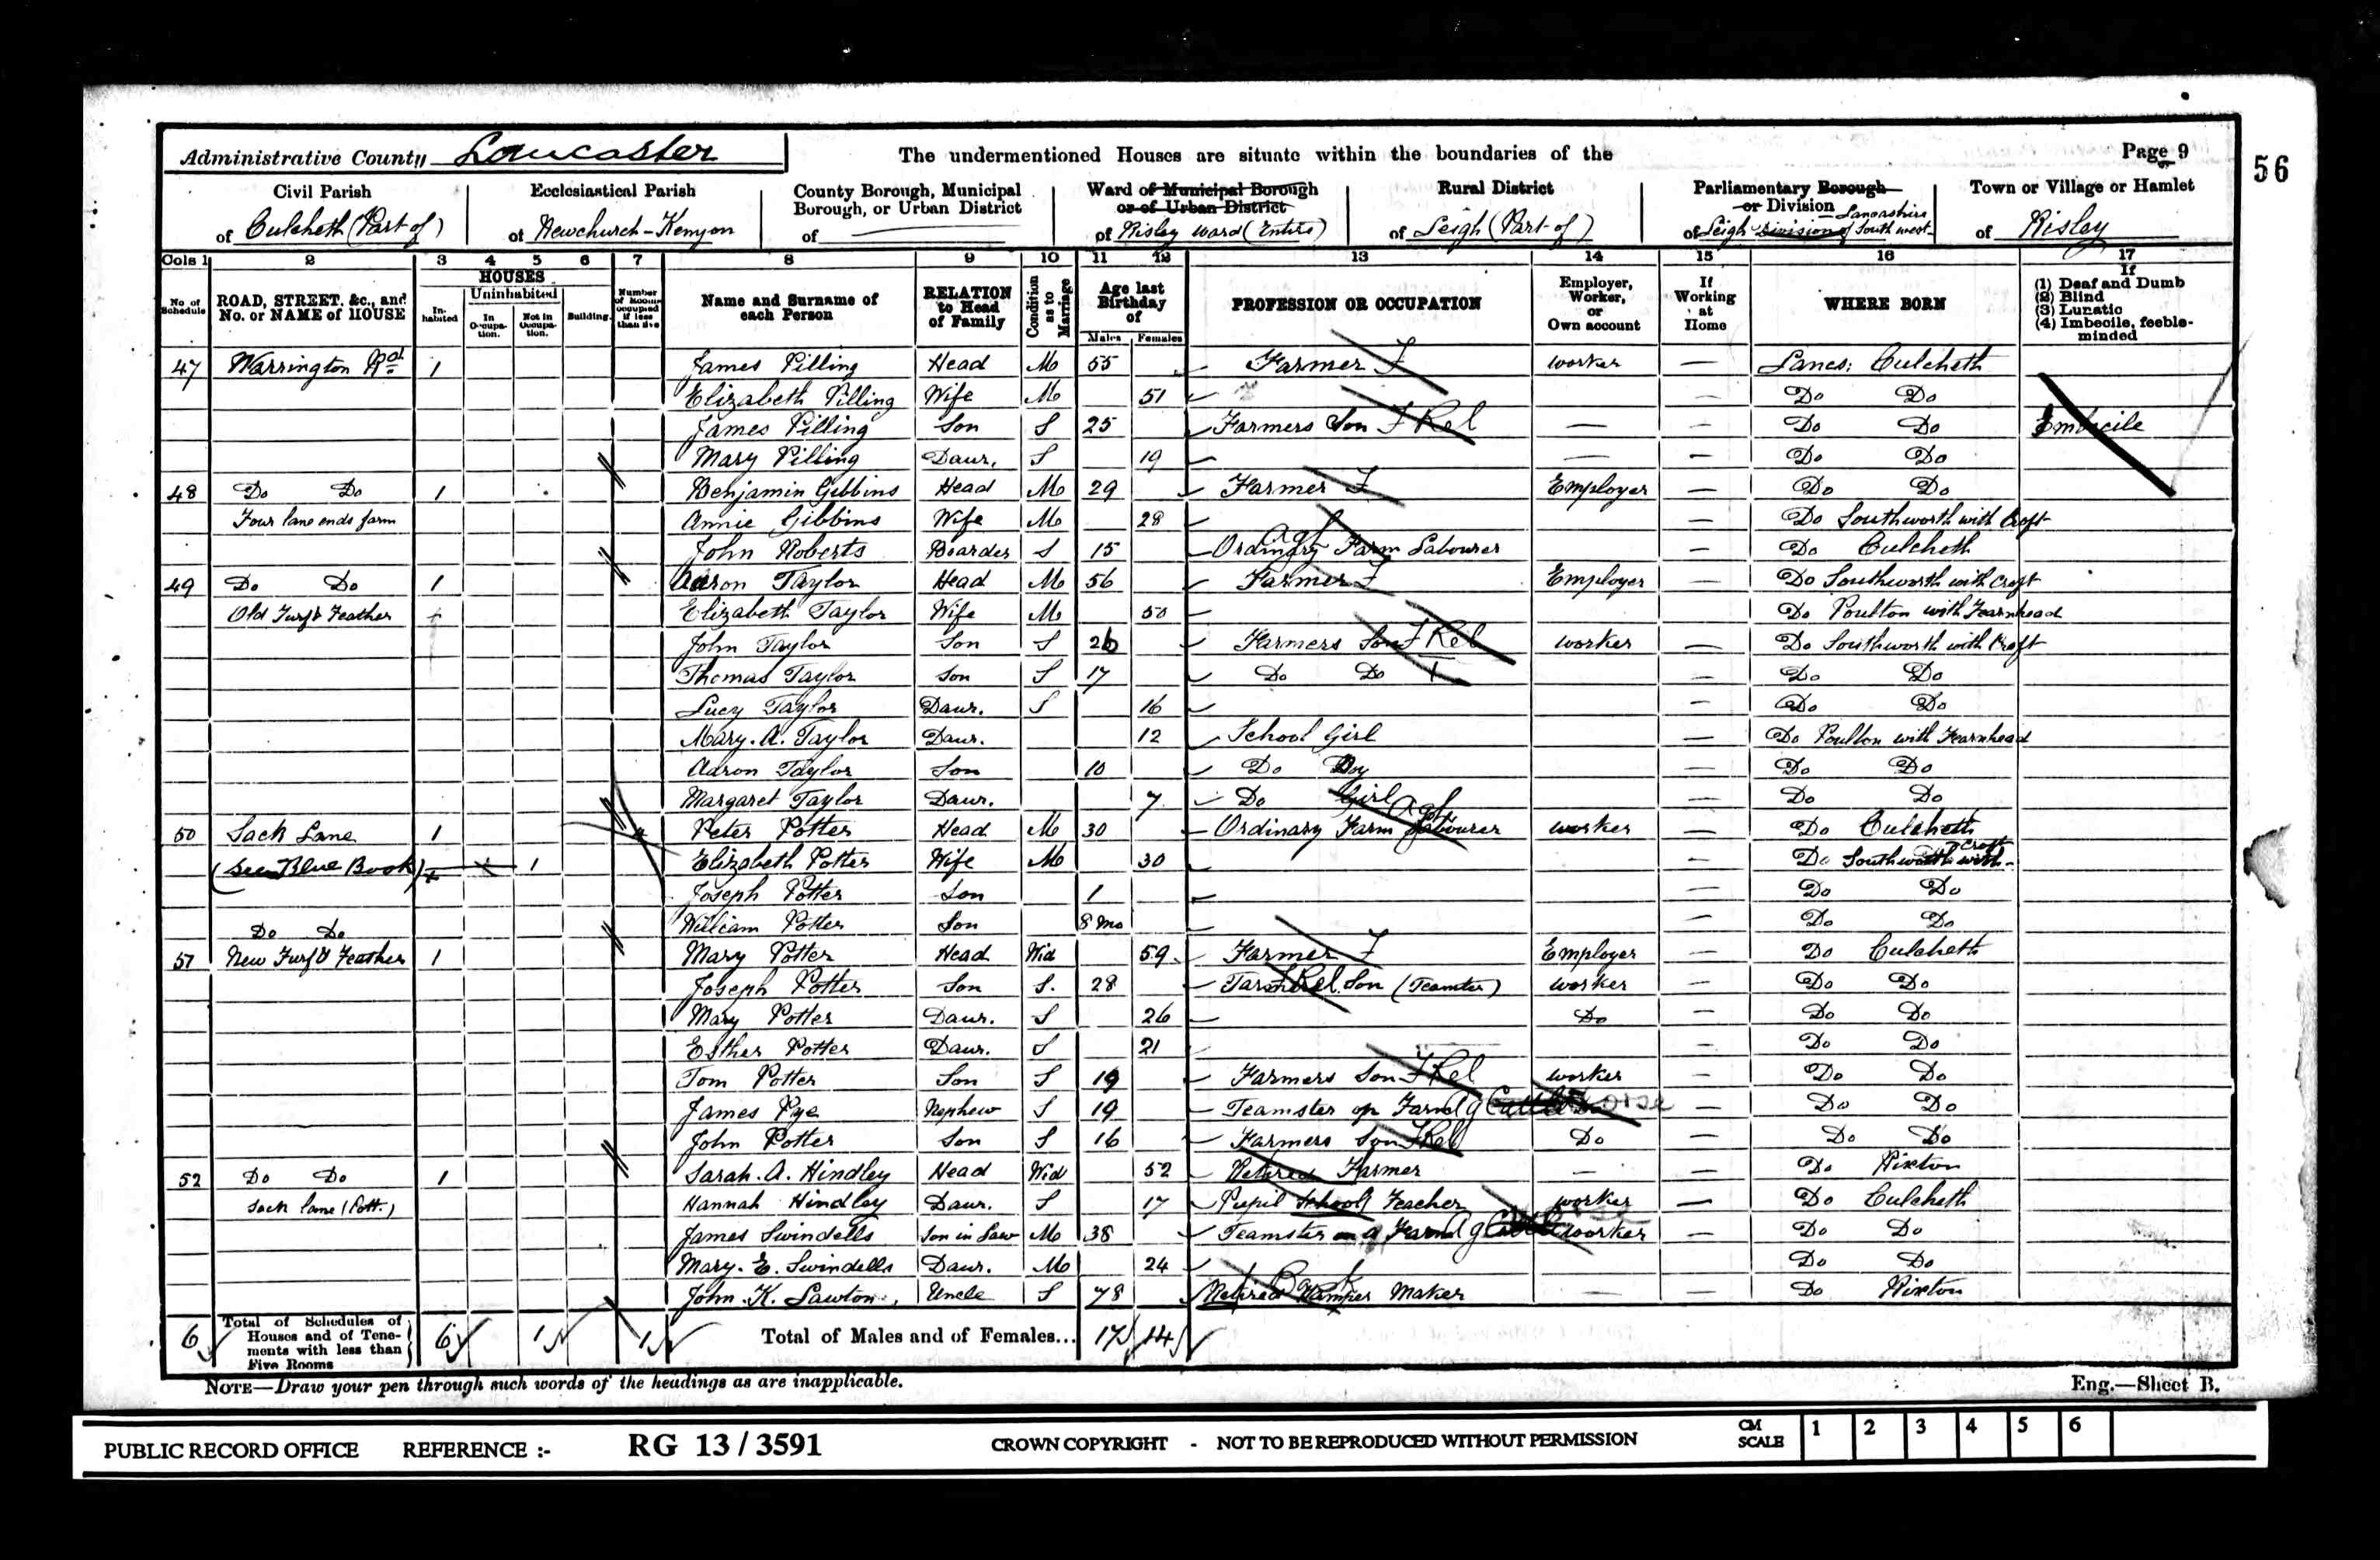 Administrative County Lancaster
The undermentioned Houses are situate within the boundaries of the
Page 9
56
Civil Parish of Culcheth (Part of)
Ecclesiastical Parish of Newchurch-Kenyon
County Borough, Municipal Borough, or Urban District of
Ward of Municipal Borough or of Urban District of Risley Ward (Entire)
Rural District of Leigh (Part of)
Parliamentary Borough or Division of Leigh Division of South west Lancashire
Town or Village or Hamlet of Risley
Cols 1 2 3 4 5 6 7 8 9 10 11 12 13 14 15 16 17
No of Schedule
ROAD, STREET, &c., and No. or NAME of HOUSE
HOUSES
In-habited
Uninhabited
In Occupa-tion.
Not in Occupa-tion.
Building.
Number of Rooms occupied if less than five
Name and Surname of each Person
RELATION to Head of Family
Condition as to Marriage
Age last Birthday of
Males Females
PROFESSION OR OCCUPATION
Employer, Worker, or Own account
If Working at Home
WHERE BORN
If (1) Deaf and Dumb (2) Blind (3) Lunatic (4) Imbecile, feeble-minded
47 Warrington Rd 1 James Pilling Head M 55 Farmer F worker — Lancs; Culcheth
Elizabeth Pilling Wife M 51 — Do Do
James Pilling Son S 25 Farmers Son F Rel — — Do Do Imbecile
Mary Pilling Daur. S 19 — — Do Do
48 Do Do 1 Benjamin Gibbins Head M 29 Farmer F Employer — Do Do
Four lane ends farm Annie Gibbins Wife M 28 — Do Southworth with Croft
John Roberts Boarder S 15 Ordinary Farm Labourer Ag — Do Culcheth
49 Do Do 1 Aaron Taylor Head M 56 Farmer F Employer — Do Southworth with Croft
Old Turf & Feather Elizabeth Taylor Wife M 50 — Do Poulton with Fearnhead
John Taylor Son S 26 Farmers Son F Rel worker — Do Southworth with Croft
Thomas Taylor Son S 17 Do Do — Do Do
Lucy Taylor Daur. S 16 — Do Do
Mary. A. Taylor Daur. 12 School Girl — Do Poulton with Fearnhead
Aaron Taylor Son 10 Do Boy — Do Do
Margaret Taylor Daur. 7 Do Girl — Do Do
50 Sack Lane 1 4 Peter Potter Head M 30 Ordinary Farm Labourer Ag worker — Do Culcheth
(See Blue Book) 1 Elizabeth Potter Wife M 30 — Do Southworth with Croft
Joseph Potter Son 1 — Do Do
Do Do William Potter Son 8 Mo — Do Do
51 New Turf & Feather 1 Mary Potter Head Wid 59 Farmer F Employer — Do Culcheth
Joseph Potter Son S. 28 F Rel Son (Teamster) worker — Do Do
Mary Potter Daur. S 26 Do — Do Do
Esther Potter Daur. S 21 — Do Do
Tom Potter Son S 19 Farmers Son F Rel worker — Do Do
James Pye Nephew S 19 Teamster on Farm Horse — Do Do
John Potter Son S 16 Farmers Son F Rel Do — Do Do
52 Do Do 1 Sarah. A. Hindley Head Wid 52 Retired Farmer — — Do Rixton
Sack lane (Cott.) Hannah Hindley Daur. S 17 Pupil School Teacher worker — Do Culcheth
James Swindells Son in Law M 38 Teamster on a Farm worker — Do Do
Mary. E. Swindells Daur. M 24 Do Do
John. K. Lawton Uncle S 78 Retired Hamper Maker — — Do Rixton
6 Total of Schedules of Houses and of Tene-ments with less than Five Rooms 6 1 1 Total of Males and of Females... 17 14
NOTE—Draw your pen through such words of the headings as are inapplicable.
Eng.—Sheet B.
PUBLIC RECORD OFFICE REFERENCE :- RG 13 / 3591 CROWN COPYRIGHT - NOT TO BE REPRODUCED WITHOUT PERMISSION CM SCALE 1 2 3 4 5 6